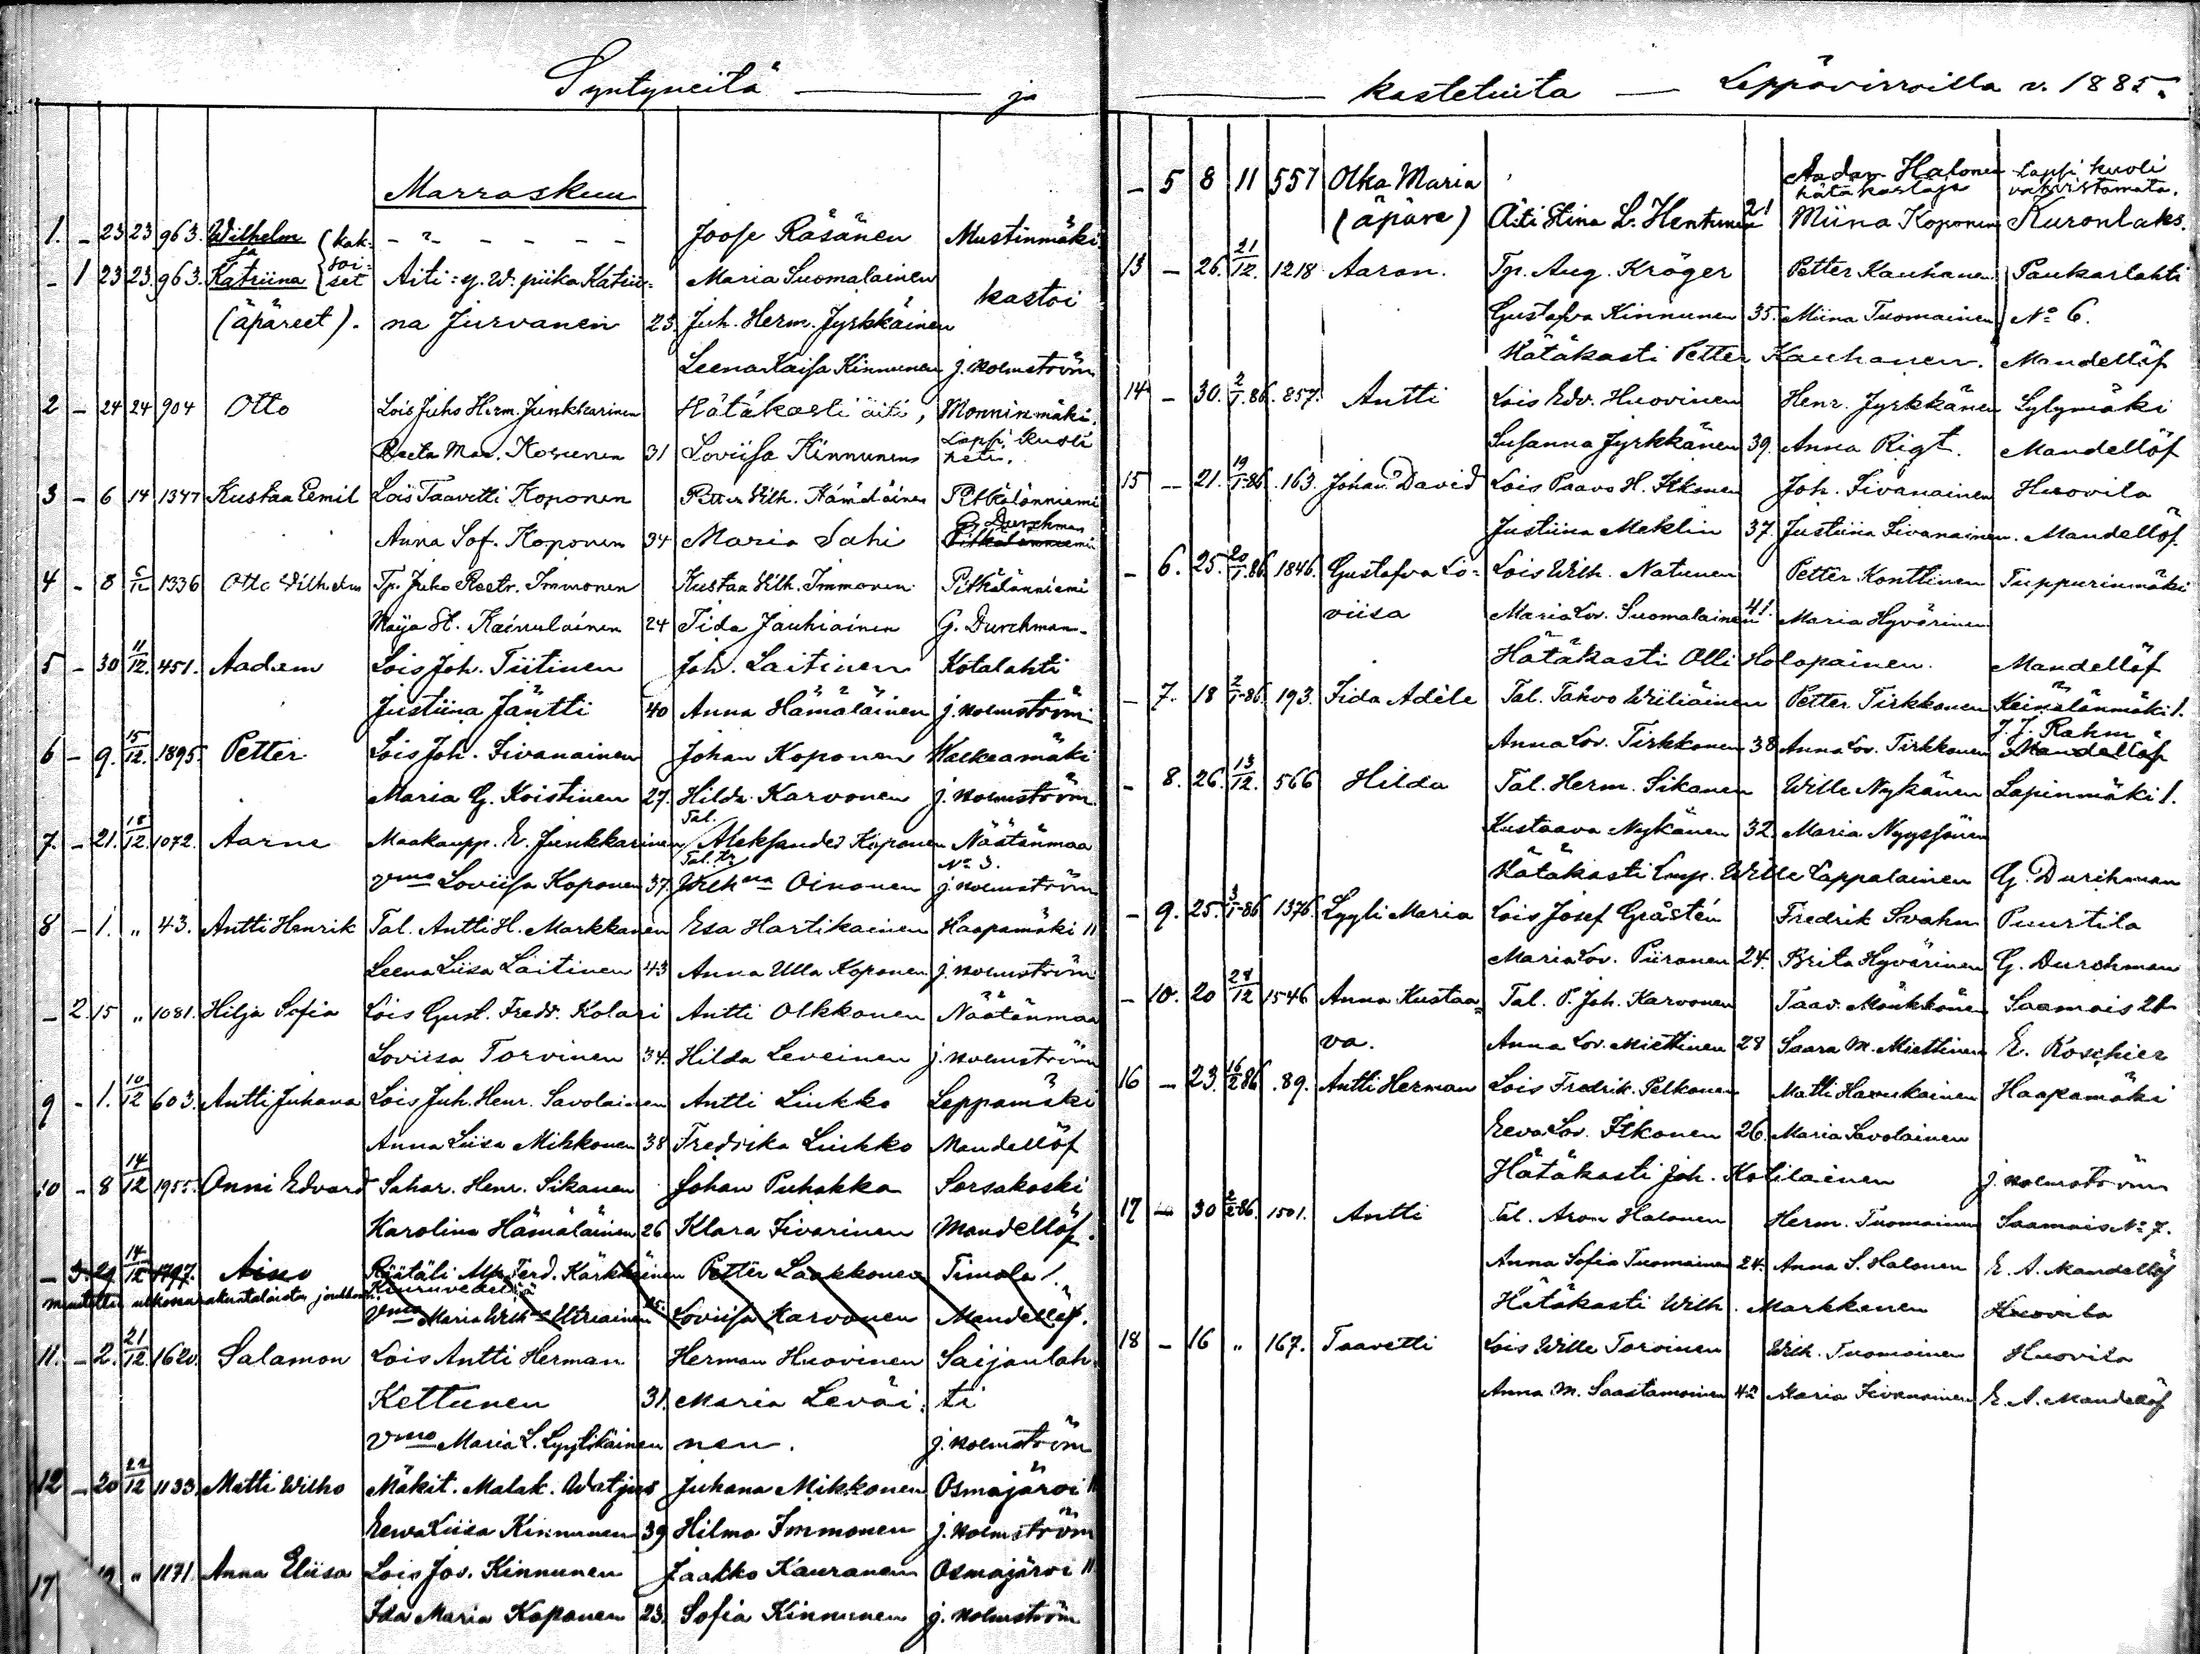 Syntyneitä — ja
Marraskuu
1. - 23 23 963. Wilhelm (kak- - " - - - - - Joose Räsänen Mustinmäki
ja soi-
- 1 23 23. 963. Katriina set Äiti: y. W. piika Katrii- Maria Suomalainen kastoi
(äpäreet). na Jurvanen 23. Juh. Herm. Jyrkkäinen
Leena Kaisa Kinnunen J. Holmström
2 - 24 24 904 Otto Lois Juho Herm. Junkkarinen Hätäkasti äiti, Monninmäki.
Reeta Mar. Kosunen 31 Loviisa Kinnunen Lapsi kuoli
heti.
3 - 6 14 1347 Kustaa Eemil Lois Taavetti Koponen Petter Wilh. Hämäläinen Pitkälänniemi
G. Durchman
Anna Sof. Koponen 34 Maria Sahi Pitkälänniemi
4 - 8 1336 Otto Wilhelm Tp. Juho Reetr. Immonen Kustaa Wilh. Immonen Pitkälänniemi
Maija St. Kainulainen 24 Iida Jauhiainen G. Durchman.
5 - 30 11/12. 451. Aadam Lois Joh. Tiitinen Joh. Laitinen Kotalahti
Justiina Jäntti 40 Anna Hämäläinen J. Holmström
6 - 9. 15/12. 1895. Petter Lois Joh. Iivanainen Johan Koponen Walkeamäki
Maria G. Koistinen 27. Hilda Karvonen J. Holmström
Tal.
7. - 21. 18/12. 1072. Aarne Maakaupp. E. Junkkarinen Aleksander Koponen Näätänmaa
Tal. tr. No 3.
vmo Loviisa Koponen 37. Wilhna Oinonen J. Holmström
8 - 1. " 43. Antti Henrik Tal. Antti H. Markkanen Esa Hartikainen Haapamäki II
Leena Liisa Laitinen 43 Anna Ulla Koponen J. Holmström
- 2. 15 " 1081. Hilja Sofia Lois Gust. Fredr. Kolari Antti Olkkonen Näätänmaa
Loviisa Torvinen 34. Hilda Leveinen J. Holmström
9 - 1. 10/12 603. Antti Juhana Lois Juh. Henr. Savolainen Antti Liukko Leppämäki
Anna Liisa Mikkonen 38 Fredrika Liukko Mandellöf
10 - 8 14/12 1955. Onni Edvard Sahar. Henr. Sikanen Johan Puhakka Sorsakoski
Karolina Hämäläinen 26 Klara Iivarinen Mandellöf.
- 3 29 14/12 1797. Aino Räätäli Alp. Ferd. Kärkkäinen Petter Laakkonen Timola 1.
muutettu ulkoseurakuntalaisten joukkoon Kiuruvedellä
vmo Maria Wilhna Utriainen 25. Loviisa Karvonen Mandellöf.
11. - 2. 21/12 1620. Salamon Lois Antti Herman Herman Huovinen Saijanlah-
Kettunen 31. Maria Leväi- ti
vmo Maria L. Lyytikäinen nen. J. Holmström
12 - 20 22/12 1133. Matti Wilho Mäkit. Malak. Watjus Juhana Mikkonen Osmajärvi II
Eewa Liisa Kinnunen 39 Hilma Immonen J. Holmström
17 " 1171 Anna Eliisa Lois Jos. Kinnunen Jaakko Kauranen Osmajärvi II
Ida Maria Koponen 23. Sofia Kinnunen J. Holmström
— kastetuita — Leppävirroilla v. 1885.
- 5 8 11 557 Olka Maria Aadam Halonen Lapsi kuoli
hätäkastaja vahvistamata.
(äpäre) Äiti Stina L. Hentunen 21 Miina Koponen Kuronlaks.
13 - 26. 21/12. 1218 Aaron. Tp. Aug. Kröger Petter Kauhanen Paukarlahti
Gustafva Kinnunen 35. Miina Tuomainen No 6.
Hätäkasti Petter Kauhanen. Mandellöf
14 - 30. 2/1-86. 857. Antti Lois Edv. Huovinen Henr. Jyrkkänen Sylymäki
Susanna Jyrkkänen 39. Anna Rigt. Mandellöf
15 - 21. 19/1-86 163. Johan David Lois Paavo H. Itkonen Joh. Iivanainen Huovila
Justiina Meklin 37. Justiina Iivanainen. Mandellöf.
- 6. 25. 20/1-86. 1846. Gustafva Lo- Lois Wilh. Natunen Petter Konttinen Tuppurinmäki
viisa Maria Lov. Suomalainen 41. Maria Hyvärinen
Hätäkasti Olli Holopainen. Mandellöf
- 7. 18 2/1-86. 193. Iida Adèle Tal. Tahvo Wiiliäinen Petter Tirkkonen Keinälänmäki 1.
J. J. Rahm
Anna Lov. Tirkkonen 38 Anna Lov. Tirkkonen Mandellöf
- 8. 26. 13/12. 566 Hilda Tal. Herm. Sikanen Wille Nykänen Lapinmäki 1.
Kustaava Nykänen 32. Maria Nyyssönen
Hätäkasti Lmp. Wille Lappalainen G. Durchman
- 9. 25. 3/1-86 1376. Lyyli Maria Lois Josef Gråstén Fredrik Svahn Puurtila
Maria Lov. Piironen 24. Brita Hyvärinen G. Durchman
- 10. 20 28/12 1546 Anna Kustaa- Tal. P. Joh. Karvonen Taav. Mönkkönen Saamais 21
va. Anna Lov. Miettinen 28 Saara M. Miettinen E. Koschier
16 - 23. 16/2 86. 89. Antti Herman Lois Fredrik Pelkonen Matti Havukainen Haapamäki
Eeva Lov. Itkonen 26. Maria Savolainen
Hätäkasti Joh. Kotilainen J. Holmström
17 - 30 2/2-86. 1501. Antti Tal. Aron Halonen Herm. Tuomainen Saamais No 7.
Anna Sofia Tuomainen 24. Anna S. Halonen E. A. Mandellöf
Hätäkasti Wilh. Markkanen Huovila
18 - 16 " 167. Taavetti Lois Wille Toroinen Wilh. Tuomainen Huovila
Anna M. Saastamoinen 42 Maria Iivanainen E. A. Mandellöf